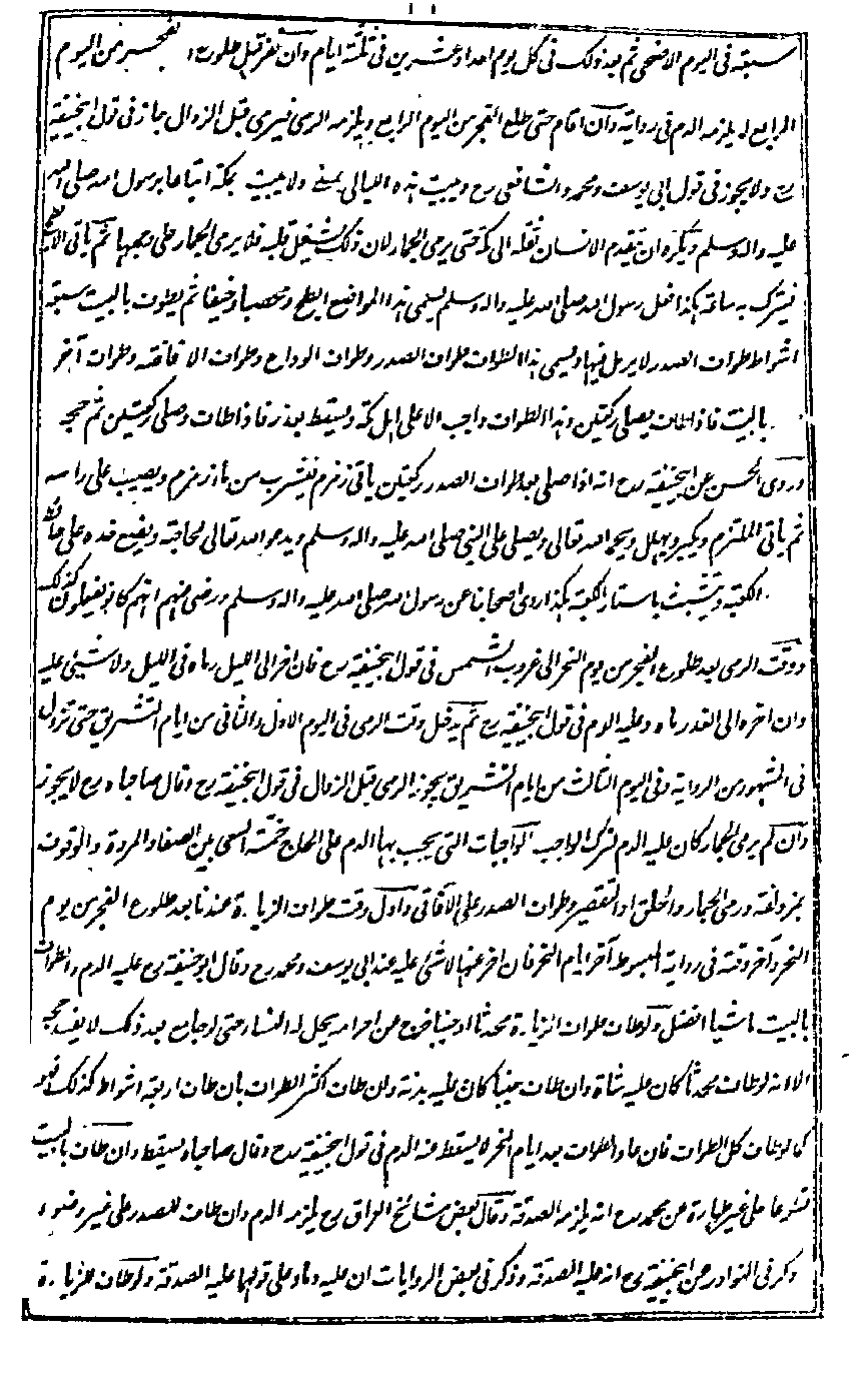 سبعة فى اليوم الاضحى ثم بعد ذلك فى كل يوم احدا وعشرين فى ثلثة ايام وان نفر قبل طلوع الفجر من اليوم
الرابع لا يلزمه الدم فى رواية وان اقام حتى طلع الفجر من اليوم الرابع ويلزمه الرمى فيرمى قبل الزوال جاز فى قول ابيحنيفة
رح ولا يجوز فى قول ابى يوسف ومحمد والشافعى رح ويبيت هذه الليالى بمنى ولا يبيت بمكة اتباعا برسول الله صلى الله
عليه واله وسلم ويكره ان يقدم الانسان ثقله الى مكة حتى يرمى الجمار لان ذلك يشغل قلبه فلا يرمى الجمار على وجهها ثم ياتى الابطح
فينزل به ساعة هكذا فعل رسول الله صلى الله عليه واله وسلم يسمى هذا المواضع ابطح ومحصبا وخيفا ثم يطوف بالبيت سبعة
اشواط طواف الصدر لا يرمل فيها ويسمى هذا الطواف طواف الصدر وطواف الوداع وطواف الافاضة وطواف آخر
بالبيت فاذا طاف يصلى ركعتين وهذا الطواف واجب الا على اهل مكة ويسقط بعذر فاذا طاف وصلى ركعتين ثم حجه
وروى الحسن عن ابيحنيفة رح انه اذا صلى بعد طواف الصدر ركعتين ياتى زمزم فيشرب من ماء زمزم ويصب على راسه
ثم ياتى الملتزم ويكبر ويهلل ويحمد الله تعالى ويصلى على النبى صلى الله عليه واله وسلم ويدعو الله تعالى لحاجته ويضع خده على حائط
الكعبة ويتشبث باستار الكعبة هكذا روى اصحابنا عن رسول الله صلى الله عليه واله وسلم ورضى عنهم انهم كانوا يفعلون كذلك
ووقت الرمى بعد طلوع الفجر من يوم النحر الى غروب الشمس فى قول ابيحنيفة رح فان اخر الى الليل رماه فى الليل ولا شيئ عليه
وان اخره الى الغد رماه وعليه الدم فى قول ابيحنيفة رح ثم يدخل وقت الرمى فى اليوم الاول والثانى من ايام التشريق حتى تزول
فى المشهور من الرواية وفى اليوم الثالث من ايام التشريق يجوز الرمى قبل الزوال فى قول ابيحنيفة رح وقال صاحباه رح لا يجوز
وان لم يرمى الجمار كان عليه الدم لترك الواجب الواجبات التى يجب بها الدم على الحاج خمسة السعى بين الصفا والمروة والوقوف
بمزدلفة ورمى الجمار والحلق او التقصير وطواف الصدر على الآفاقى واول وقت طواف الزيارة عندنا بعد طلوع الفجر من يوم
النحر وآخر وقته فى رواية المبسوط آخر ايام النحر فان اخر عنها لا شئ عليه عند ابى يوسف ومحمد رح وقال ابو حنيفة رح عليه الدم والطواف
بالبيت ماشيا افضل ولو طاف طواف الزيارة محدثا او جنبا خرج عن احرامه يحل له النساء حتى لو جامع بعد ذلك لا يفسد حجه
الا انه لو طاف محدثا كان عليه شاة وان طاف جنبا كان عليه بدنة وان طاف اكثر الطواف بان طاف اربعة اشواط كذلك فهو
كما لو طاف كل الطواف فان عاد الطواف بعد ايام النحر لا يسقط عنه الدم فى قول ابيحنيفة رح وقال صاحباه يسقط وان طاف بالبيت
تطوعا على غير طهارة عن محمد رح انه يلزمه الصدقة وقال بعض مشائخ العراق رح يلزمه الدم وان طاف للصدر على غير وضوء
ذكر فى النوادر عن ابيحنيفة رح انه عليه الصدقة وذكر فى بعض الروايات ان عليه دما وعلى قولهما عليه الصدقة ولو طاف للزيارة